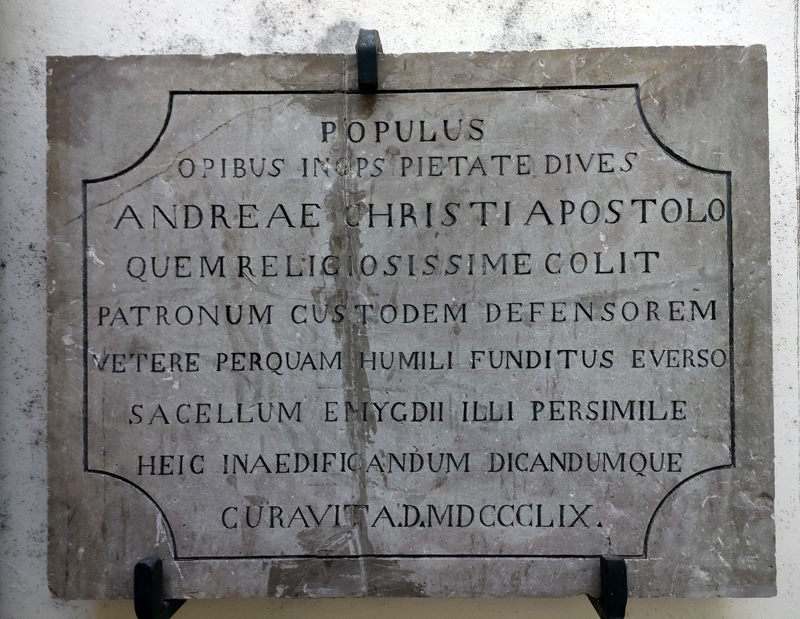 POPULUS
OPIBUS INOPS PIETATE DIVES
ANDREAE CHRISTI APOSTOLO
QUEM RELIGIOSISSIME COLIT
PATRONUM CUSTODEM DEFENSOREM
VETERE PERQUAM HUMILI FUNDITUS EVERSO
SACELLUM EMYGDII ILLI PERSIMILE
HEIC INAEDIFICANDUM DICANDUMQUE
CURAVIT A.D.MDCCCLIX.